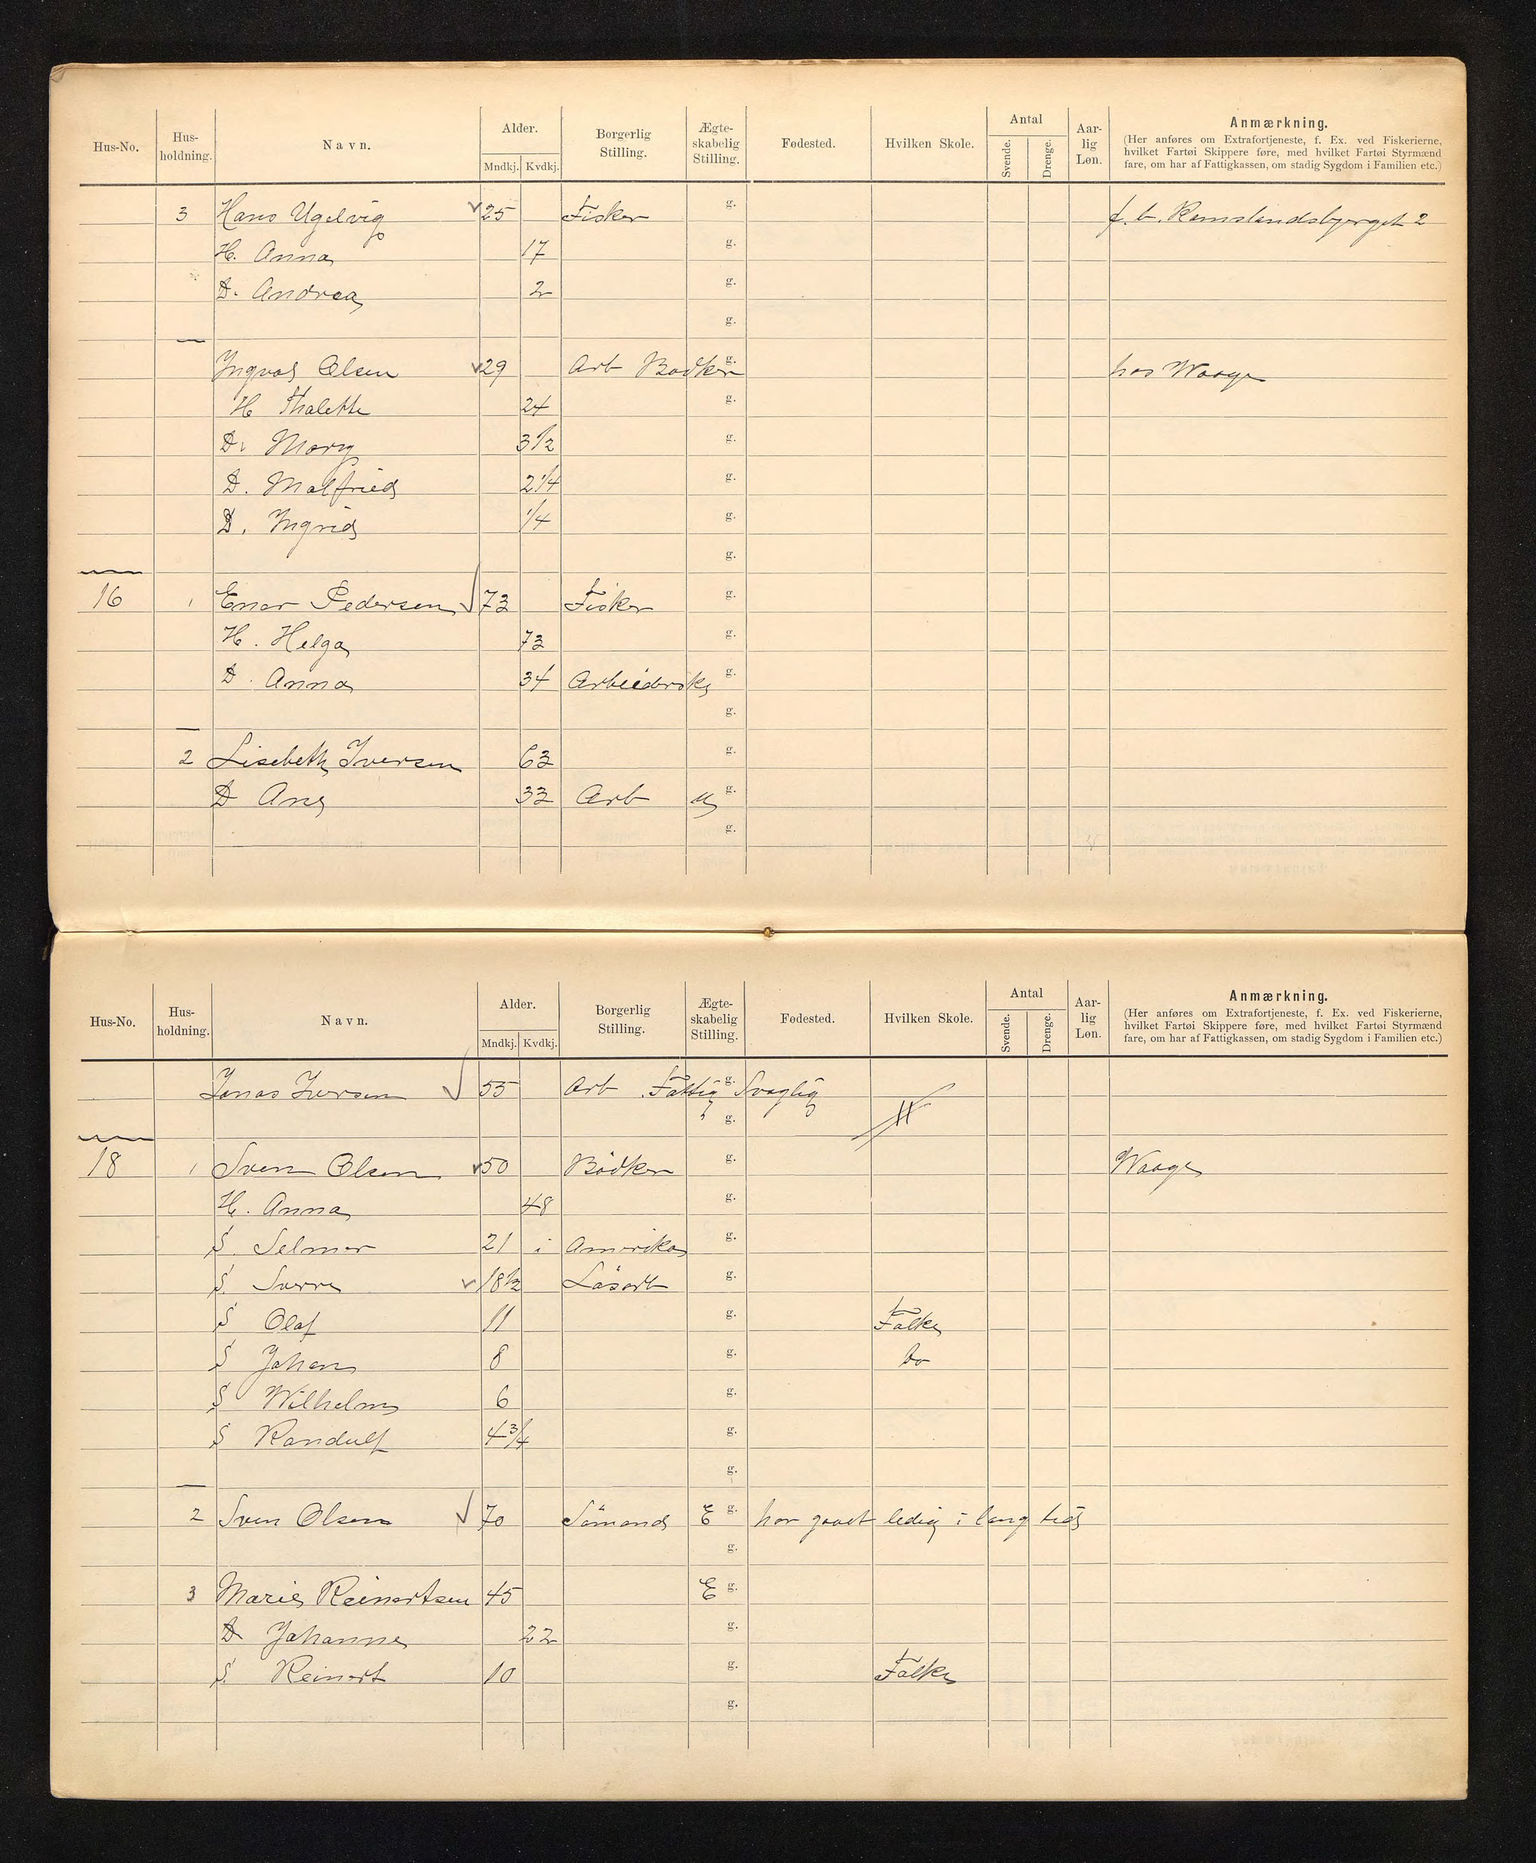 Hus-No. Hus-holdning. Navn. Alder. Mndkj. Kvdkj. Borgerlig Stilling. Ægte-skabelig Stilling. Fødested. Hvilken Skole. Antal Svende. Drenge. Aar-lig Løn. Anmærkning.
(Her anføres om Extrafortjeneste, f. Ex. ved Fiskerierne,
hvilket Fartøi Skippere føre, med hvilket Fartøi Styrmænd
fare, om har af Fattigkassen, om stadig Sygdom i Familien etc.)
3 Hans Ugelvig 25 Fisker g. f. b. Ramslandsbjerget 2
H. Anna 17 g.
D. Andrea 2 g.
g.
Ingvald Olsen 29 Arb Bødker g. hos Waage
H Thalette 24 g.
D. Mary 3 1/2 g.
D. Malfried 2 1/4 g.
D. Ingrid 1/4 g.
g.
16 1 Enar Pedersen 73 Fisker g.
H. Helga 73 g.
D. Anna 34 Arbeiderske g.
g.
2 Lisebeth Iversen 63 g.
D Ane 33 Arb u g.
g.
Hus-No. Hus-holdning. Navn. Alder. Mndkj. Kvdkj. Borgerlig Stilling. Ægte-skabelig Stilling. Fødested. Hvilken Skole. Antal Svende. Drenge. Aar-lig Løn. Anmærkning.
(Her anføres om Extrafortjeneste, f. Ex. ved Fiskerierne,
hvilket Fartøi Skippere føre, med hvilket Fartøi Styrmænd
fare, om har af Fattigkassen, om stadig Sygdom i Familien etc.)
Jonas Iversen 55 Arb Fattig g. Svaglig
g.
18 1 Sven Olsen 50 Bødker g. Waage
H. Anna 48 g.
S. Selmer 21 i Amerika g.
S. Sverre 18 1/2 Løsarb g.
S Olaf 11 g. Folke
S Johan 8 g. do
S Wilhelm 6 g.
S Randulf 4 3/4 g.
g.
2 Sven Olsen 70 Sømand E g. har gaaet ledig i lang tid
g.
3 Marie Reinertsen 45 E g.
D Johanne 22 g.
S. Reinert 10 g. Folke
g.